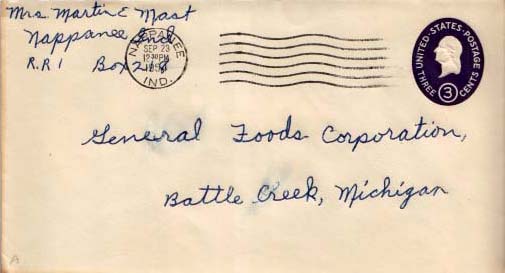 Mrs Martin E Mast
Nappanee Ind
R.R 1 Box 218
NAPPANEE
SEP 23
12 30 PM
IND.
UNITED STATES POSTAGE
THREE 3 CENTS
General Foods Corporation,
Battle Creek, Michigan
A